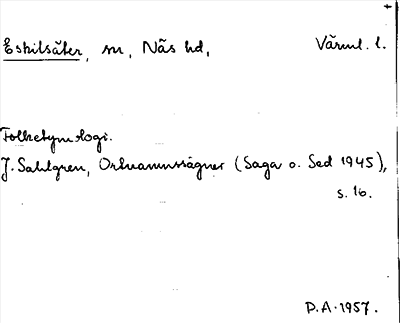 Eskilsäter, sn, Näs hd, Värml. l.
Folketymologi.
J. Sahlgren, Ortnamnssägner (Saga o. Sed 1945),
s. 16.
D.A. 1957.